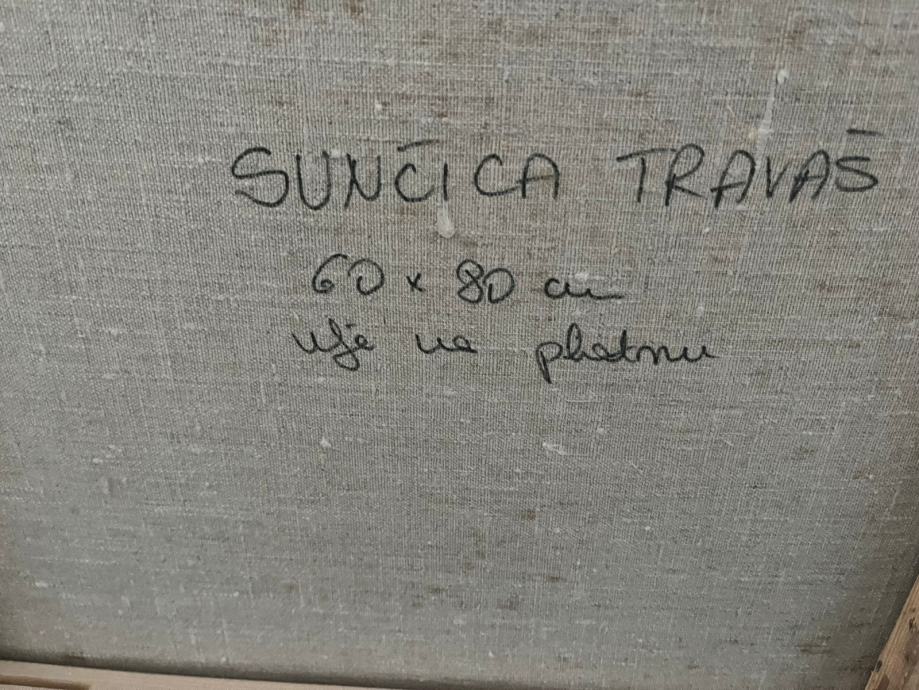 SUNČICA TRAVAŠ
60 x 80 cm
ulje na platnu